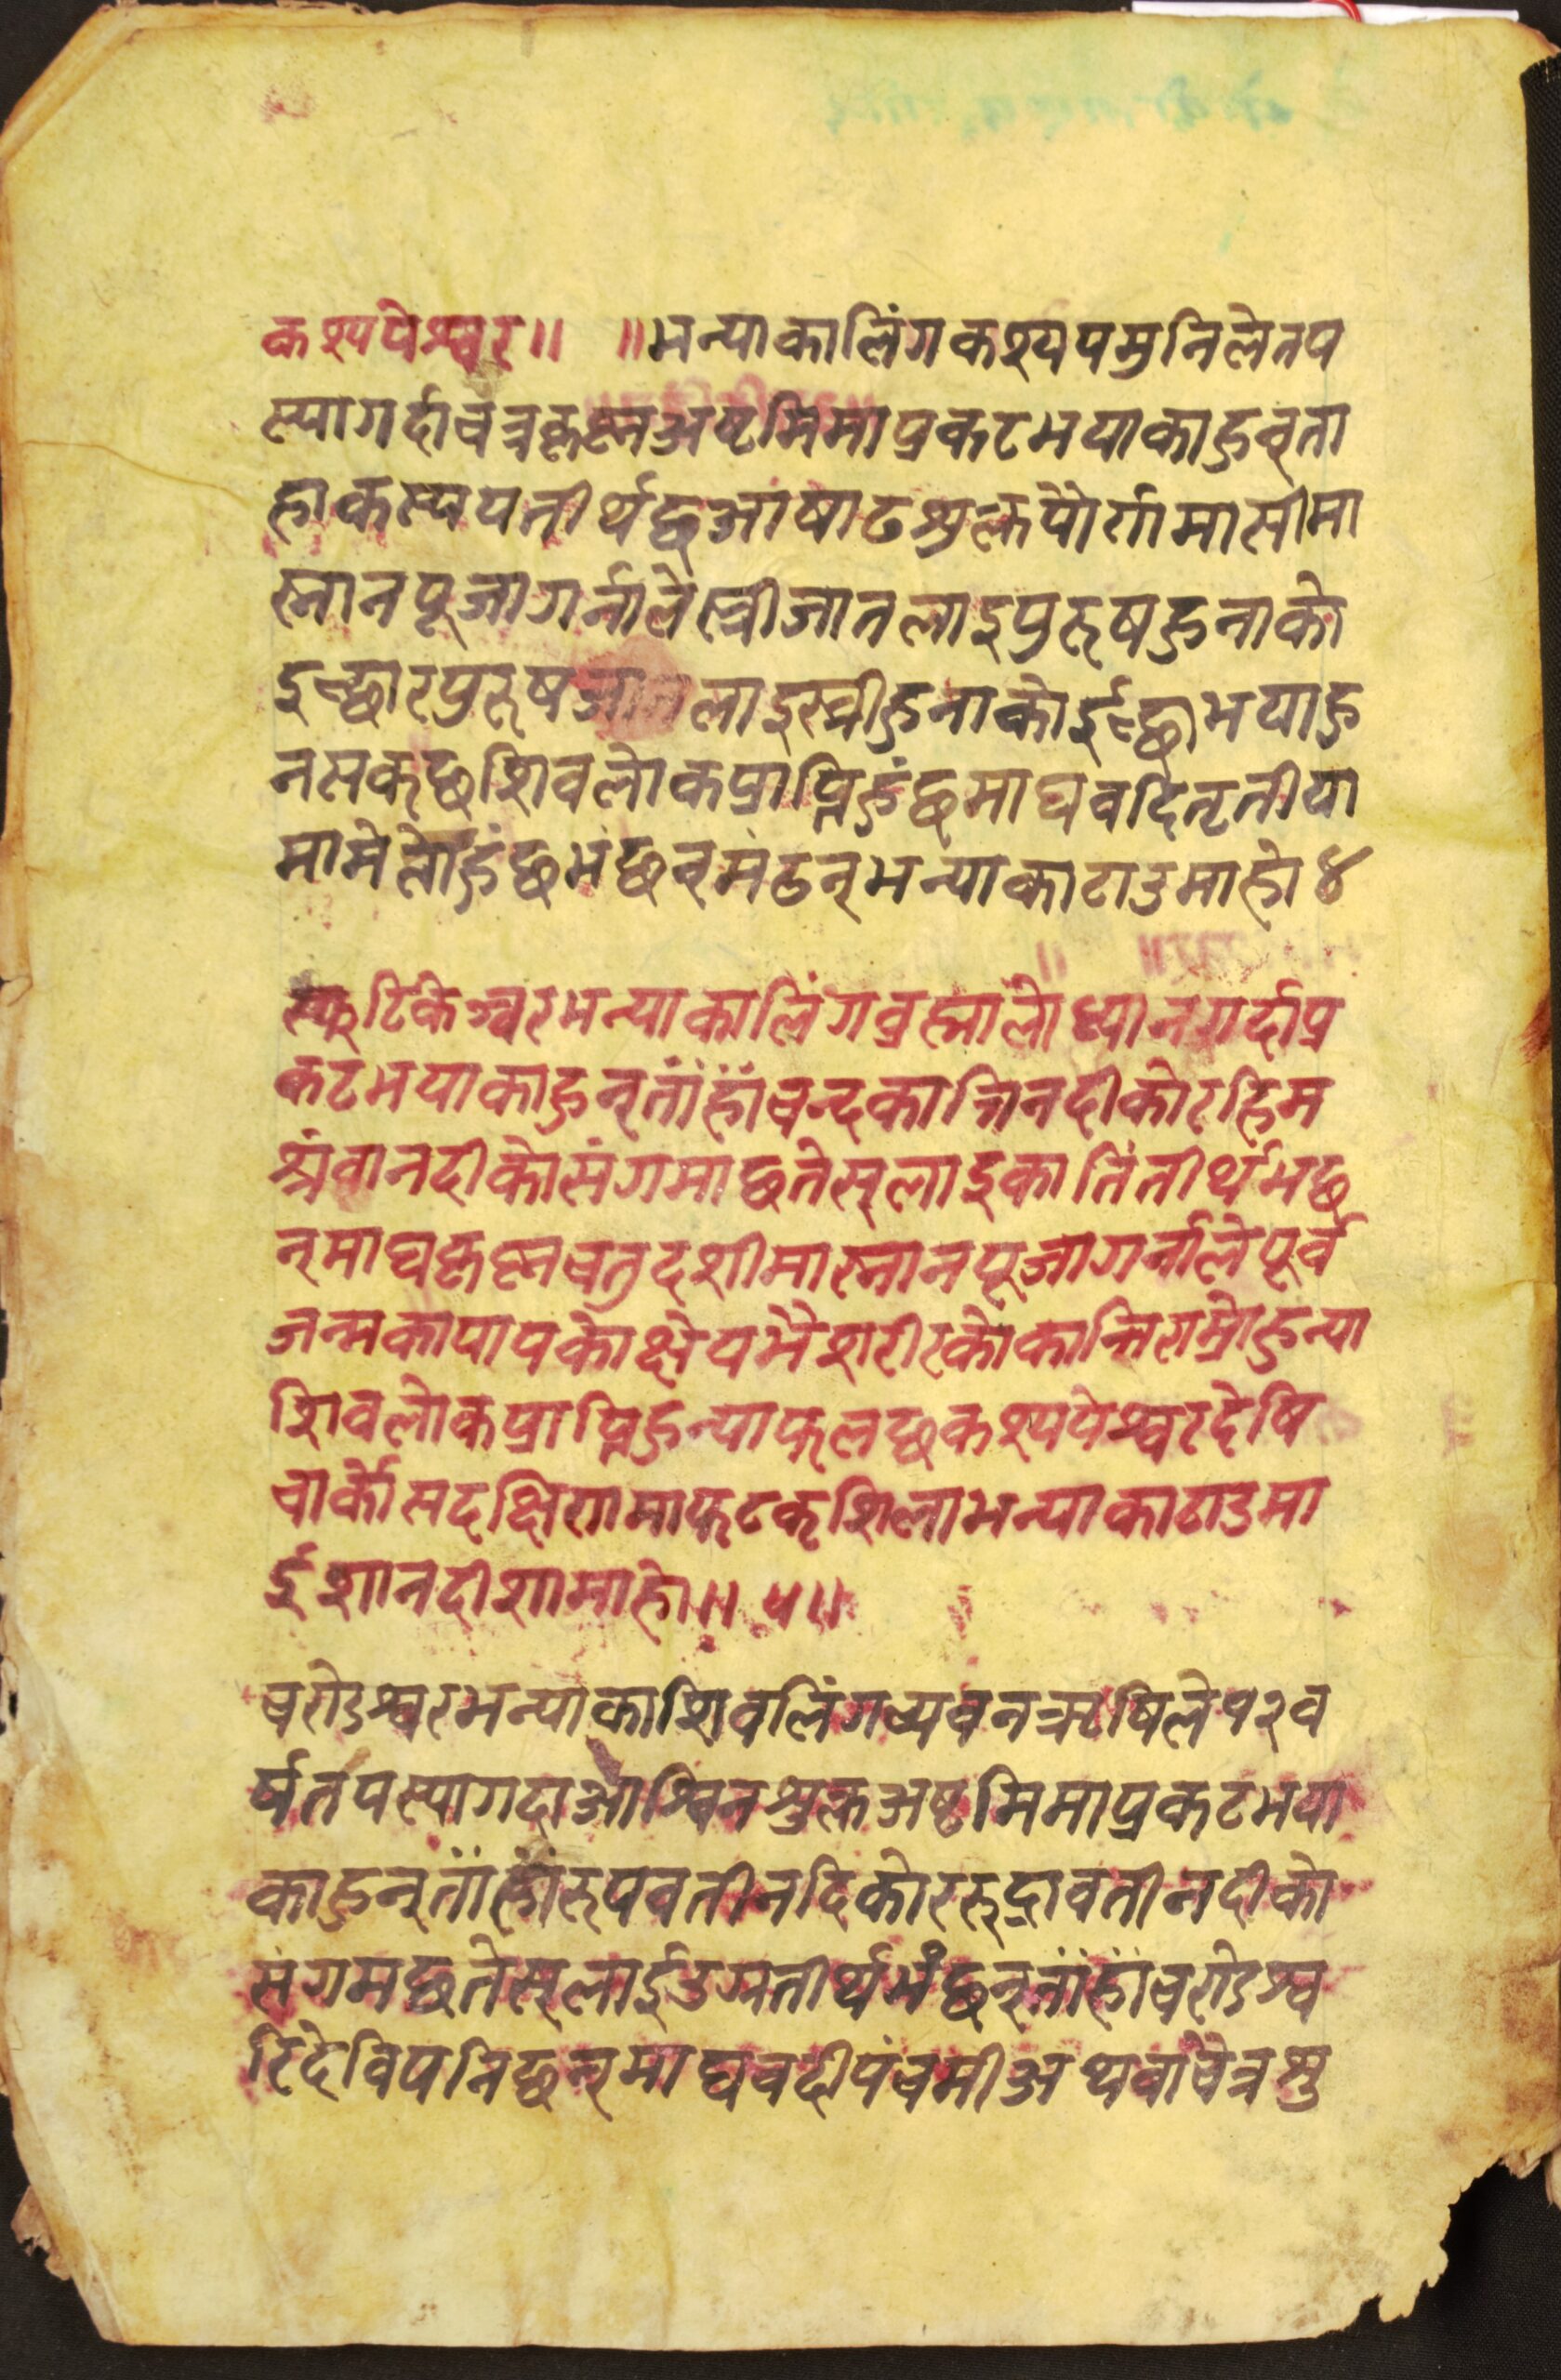 कश्यपेश्वर॥ ॥भन्याकालिंगकश्यपमुनिलेतप
स्यागर्दाचत्रकृष्नअष्टमिमाप्रकटभयाकाहुन्ता
हाकस्यपतीर्थछआषाढशुक्लपौर्णामासीमा
स्नानपूजागर्नालेस्त्रीजातलाइपुरूषहुनाको
इन्छारपुरूषजातलाइस्त्रीहुनाकोईन्छाभयाहु
नसकछशिवलोकप्राप्तिहुंछमाघवदितृतीया
मामेलोहुंछभंछन्मंढन्भन्याकाटाउमाहो४
स्फटिकेश्वरभन्याकालिंगव्रह्मालेध्यानगर्दाप्र
कटभयाकाहुन्तांहांचन्दकान्तिनदीकोरहिम
श्रंवानदीकोसंगमाछतेस्लाइकांतितीर्थभंछ
न्माघकृष्नचतुदशीमास्नानपूजागर्नालेपूर्व
जन्मकापापकोक्षेयभैशरीरकोकान्तिराम्रोहुन्या
शिवलोकप्राप्तिहुन्याफलछकश्यपेश्वरदेषि
चार्कोसदक्षिणमाफटकशिलाभन्याकाटाउमा
ईशानदीशामाहो॥५॥
चरोडेश्वरभन्याकाशिवलिंगच्यवनऋषिले१२व
र्षतपस्यागदाआश्विनशुक्लअष्टमिमाप्रकटभया
काहुन्तांहांरूपवतीनदिकोररूद्रावतीनदीको
संगमछतेस्लाईउग्रतीर्थभंछन्तांहांचरोडेश्व
रिदेविपनिछन्माघवदीपंचमीअथवाचैत्रशु